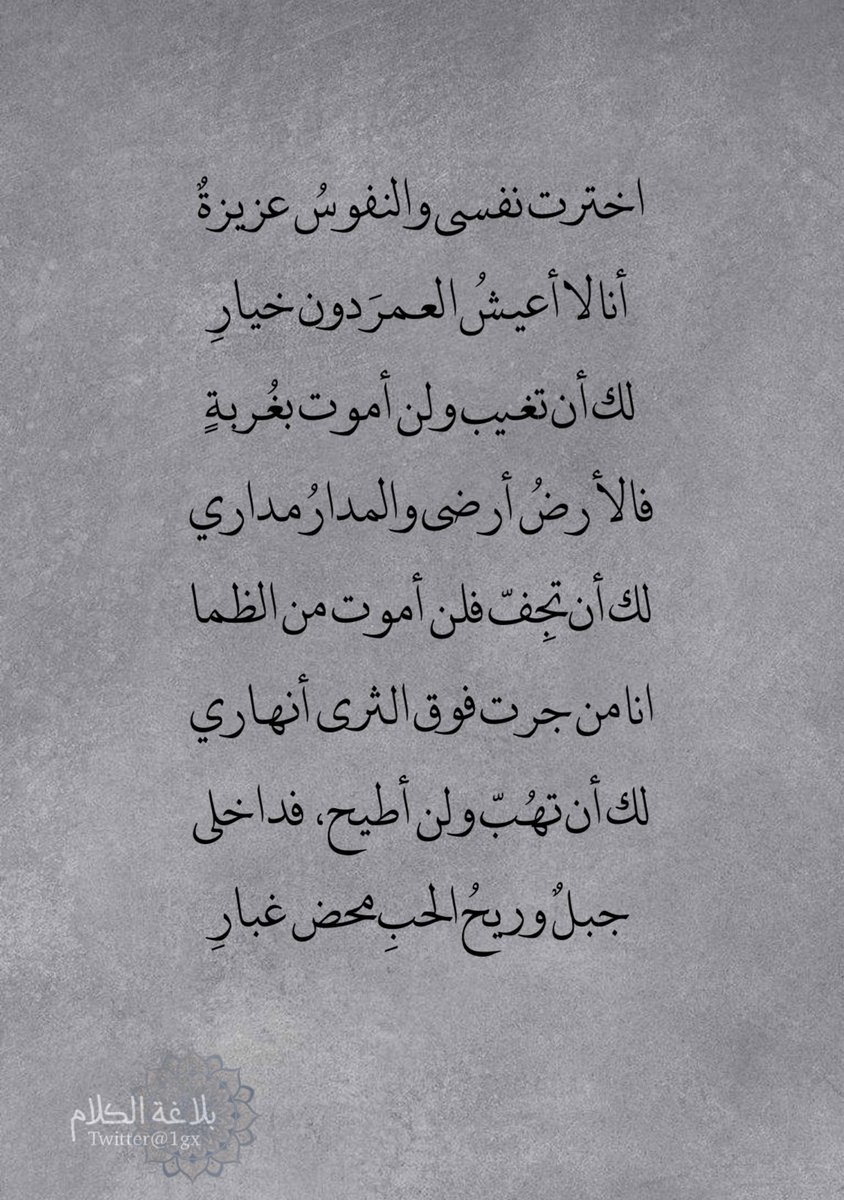 اخترت نفسى والنفوسُ عزيزةٌ
أنا لا أعيشُ العمرَ دون خيارِ
لك أن تغيب ولن أموت بغُربةٍ
فالأرضُ أرضى والمدارُ مداري
لك أن تجِفّ فلن أموت من الظما
انا من جرت فوق الثرى أنهاري
لك أن تهُبّ ولن أطيح، فداخلى
جبلٌ وريحُ الحبِ محض غبارِ
بلاغة الكلام
Twitter@1gx